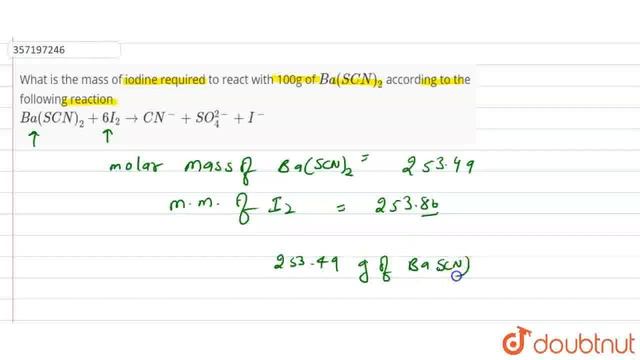 357197246
What is the mass of iodine required to react with 100g of Ba(SCN)₂ according to the
following reaction
Ba(SCN)₂ + 6I₂ → CN⁻ + SO₄²⁻ + I⁻
molar mass of Ba(SCN)₂ = 253.49
m.m. of I₂ = 253.86
253.49 g of Ba SCN)
doubtnut